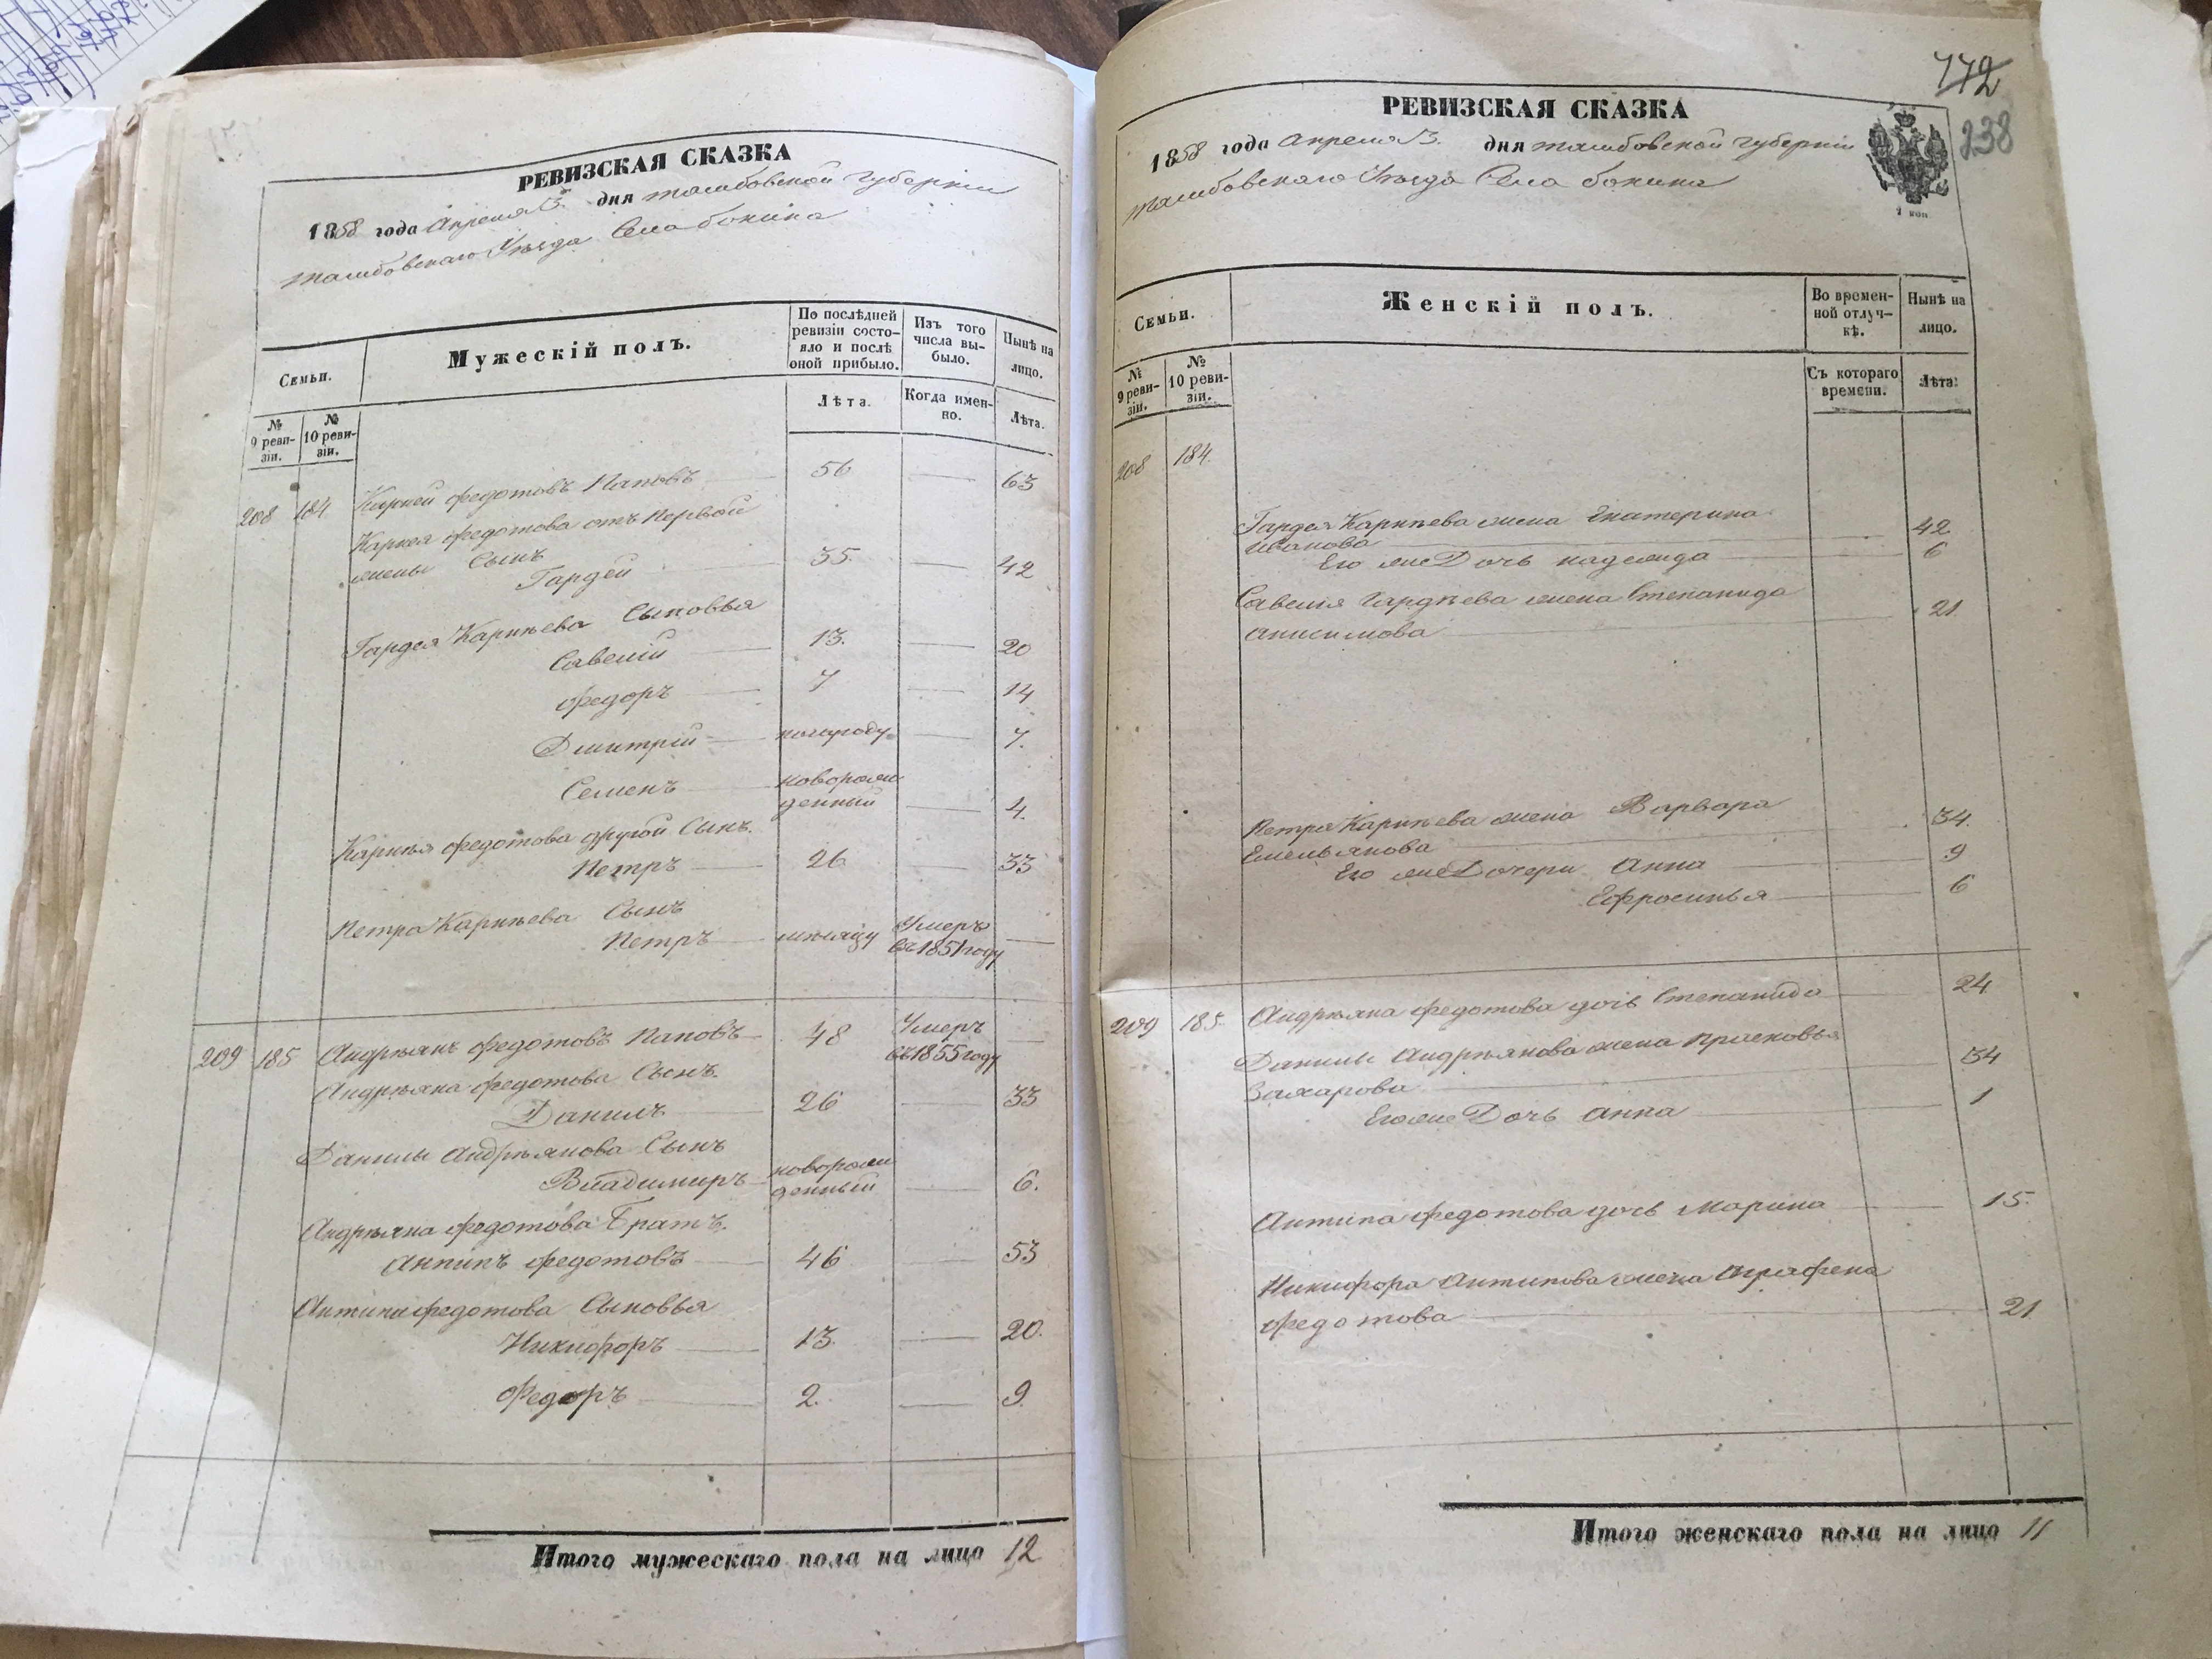 РЕВИЗСКАЯ СКАЗКА
1858 года Апреля 13. дня Тамбовской Губернии
Тамбовскаго Уезда Села бокина
Семьи.
Мужескій полъ.
По послѣдней ревизіи состояло и послѣ оной прибыло.
Изъ того числа выбыло.
Нынѣ на лицо.
№ 9 ревизіи.
№ 10 ревизіи.
Лѣта.
Когда именно.
Лѣта.
208 184 Карней федотовъ Паповъ 56 63
Карнея федотова отъ Первой
жены Сынъ
Гардей 35. 42
Гардея Карнѣева Сыновья
Савелій 13. 20
федоръ 7 14
Дмитрій полугоду 7.
Семенъ новорож
денный 4.
Карнѣя федотова другой Сынъ.
Петръ 26 33
Петра Карнѣева Сынъ
Петръ мѣсяцу Умеръ
въ 1851 году
209 185 Андрѣянъ федотовъ Паповъ 48 Умеръ
въ 1855 году
Андрѣяна федотова Сынъ.
Данилъ 26 33
Данилы Андрѣянова Сынъ
Владимиръ новорож
денный 6.
Андрѣяна федотова Братъ.
Антипъ федотовъ 46 53
Антипа федотова Сыновья
Никифоръ 13. 20.
Федоръ 2. 9.
Итого мужескаго пола на лицо 12
772
238
РЕВИЗСКАЯ СКАЗКА
1858 года Апреля 13. дня Тамбовской Губерніи
Тамбовскаго Уезда Села бокина
1 коп
Семьи.
Женскій полъ.
Во временной отлучкѣ.
Нынѣ на лицо.
№ 9 ревизіи.
№ 10 ревизіи.
Съ котораго времени.
Лѣта.
208 184.
Гардея Карнѣева жена Екатерина
Иванова 42
Его же Дочь надежда 6
Савелія Гардѣева жена Степанида
анисимова 21
Петра Карнѣева жена Варвара
Емельянова 34.
Его же Дочери Анна 9
Ефросинья 6
209 185. Андрѣяна федотова дочь Степанида 24
Данилы Андрѣянова жена Прасковья
Захарова 34
Его же Дочь анна 1
Антипа федотова дочь Марина 15.
Никифора Антипова жена Аграфена
федотова 21
Итого женскаго пола на лицо 11